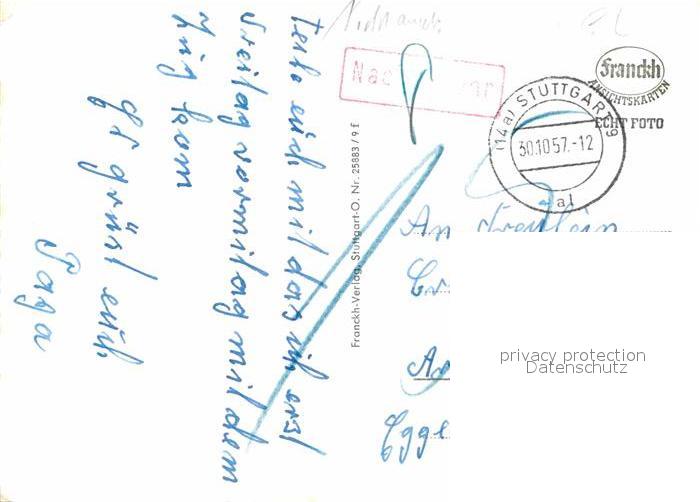 Teile euch mit das ich erst
Freitag vormitag mit dem
Zug kom
Es grüst euch
Papa
Franckh-Verlag, Stuttgart-O. Nr. 25883 / 9 f
Franckh
ANSICHTSKARTEN
ECHT FOTO
(14a) STUTTGART 9
30.10.57.-12
al
An Freulein
privacy protection
Datenschutz